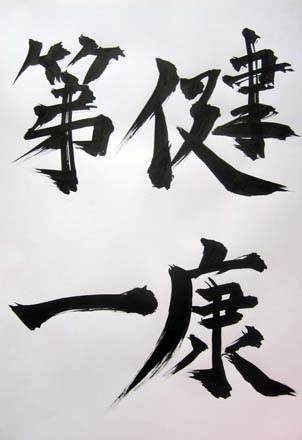 健康
第一